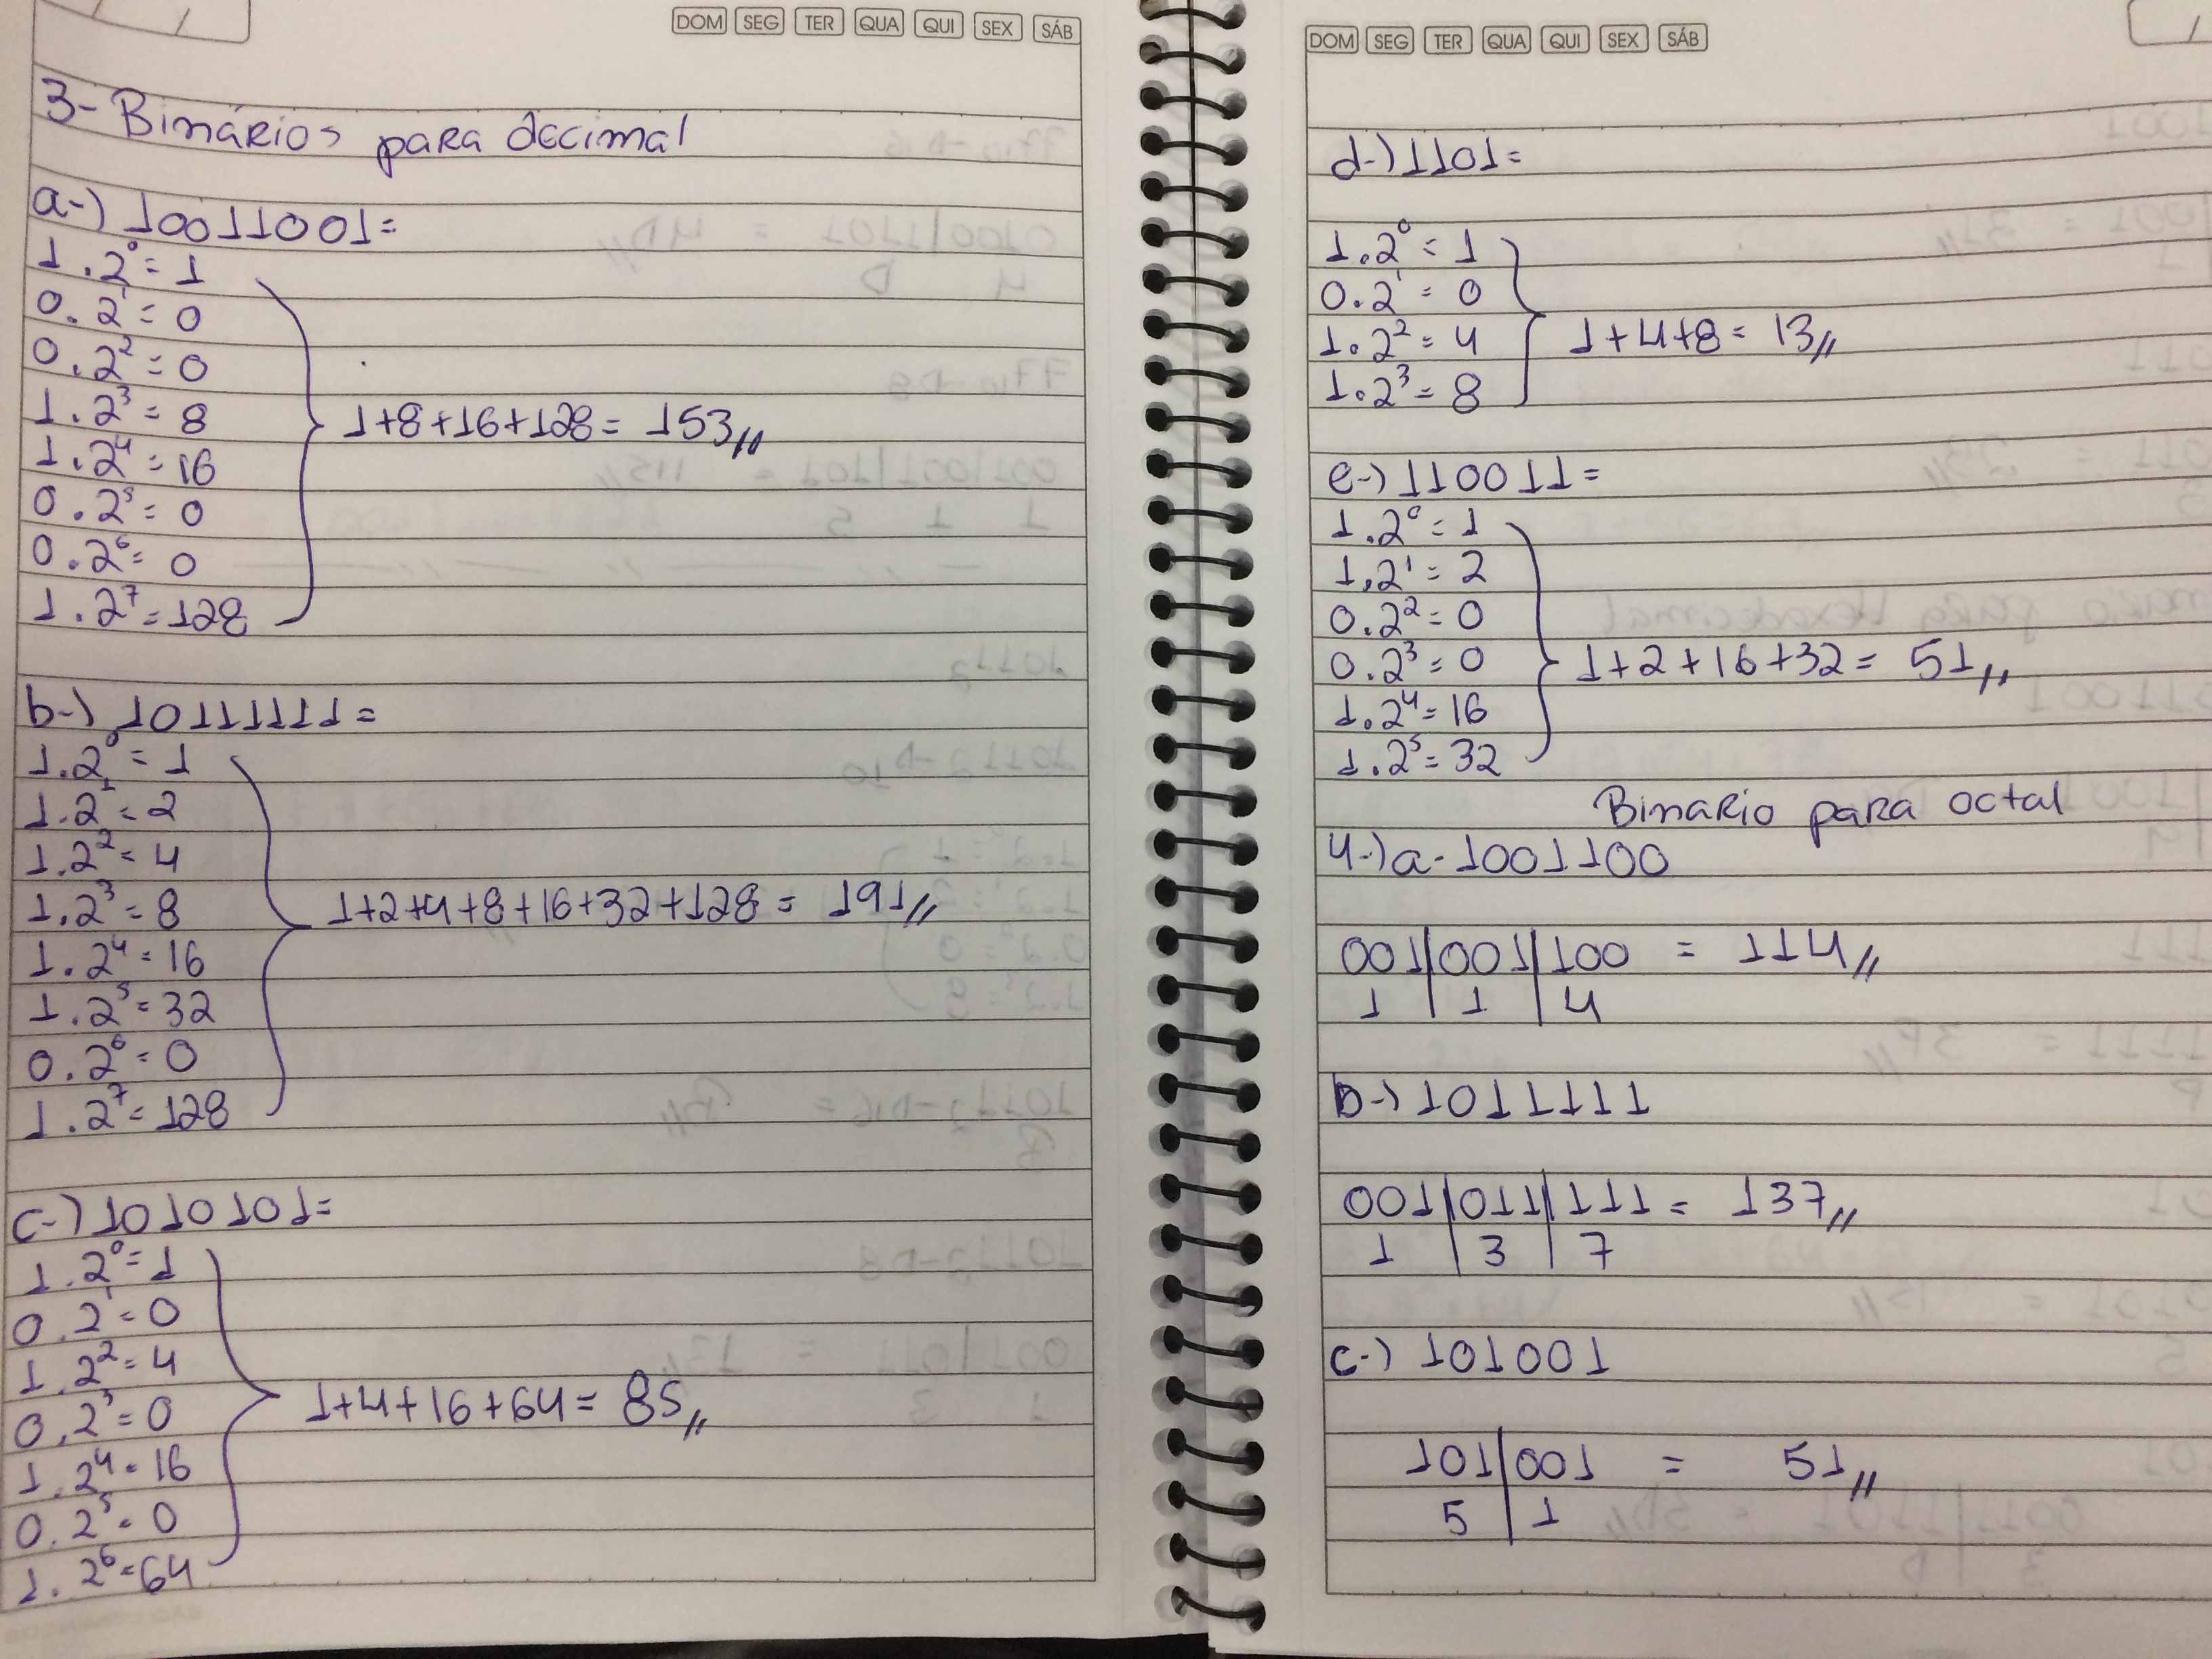 DOM SEG TER QUA QUI SEX SÁB
3- Binários para decimal
a-) 10011001=
1.2⁰=1
0.2¹=0
0.2²=0
1.2³=8
1.2⁴=16
0.2⁵=0
0.2⁶=0
1.2⁷=128
1+8+16+128= 153//
b-) 10111111=
1.2⁰=1
1.2¹=2
1.2²=4
1.2³=8
1.2⁴=16
1.2⁵=32
0.2⁶=0
1.2⁷=128
1+2+4+8+16+32+128= 191//
c-) 1010101=
1.2⁰=1
0.2¹=0
1.2²=4
0.2³=0
1.2⁴=16
0.2⁵=0
1.2⁶=64
1+4+16+64= 85//
DOM SEG TER QUA QUI SEX SÁB
d-) 1101=
1.2⁰=1
0.2¹=0
1.2²=4
1.2³=8
1+4+8= 13//
e-) 110011=
1.2⁰=1
1.2¹=2
0.2²=0
0.2³=0
1.2⁴=16
1.2⁵=32
1+2+16+32= 51//
Binario para octal
4-) a-1001100
001|001|100 = 114//
1 | 1 | 4
b-) 1011111
001|011|111= 137//
1 | 3 | 7
c-) 101001
101|001 = 51//
5 | 1